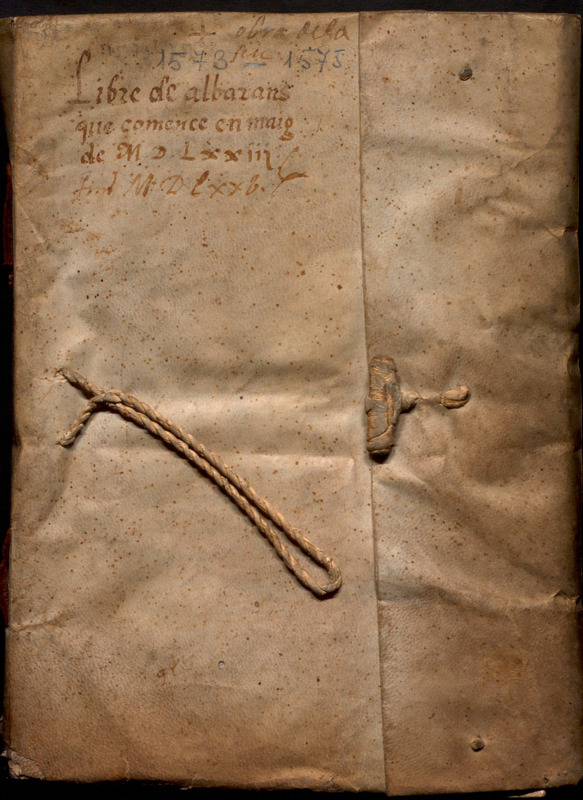 obra de la
1573 Seu 1575
Libre de albarans
que comence en maig
de M D Lxxiij
M D lxxb.